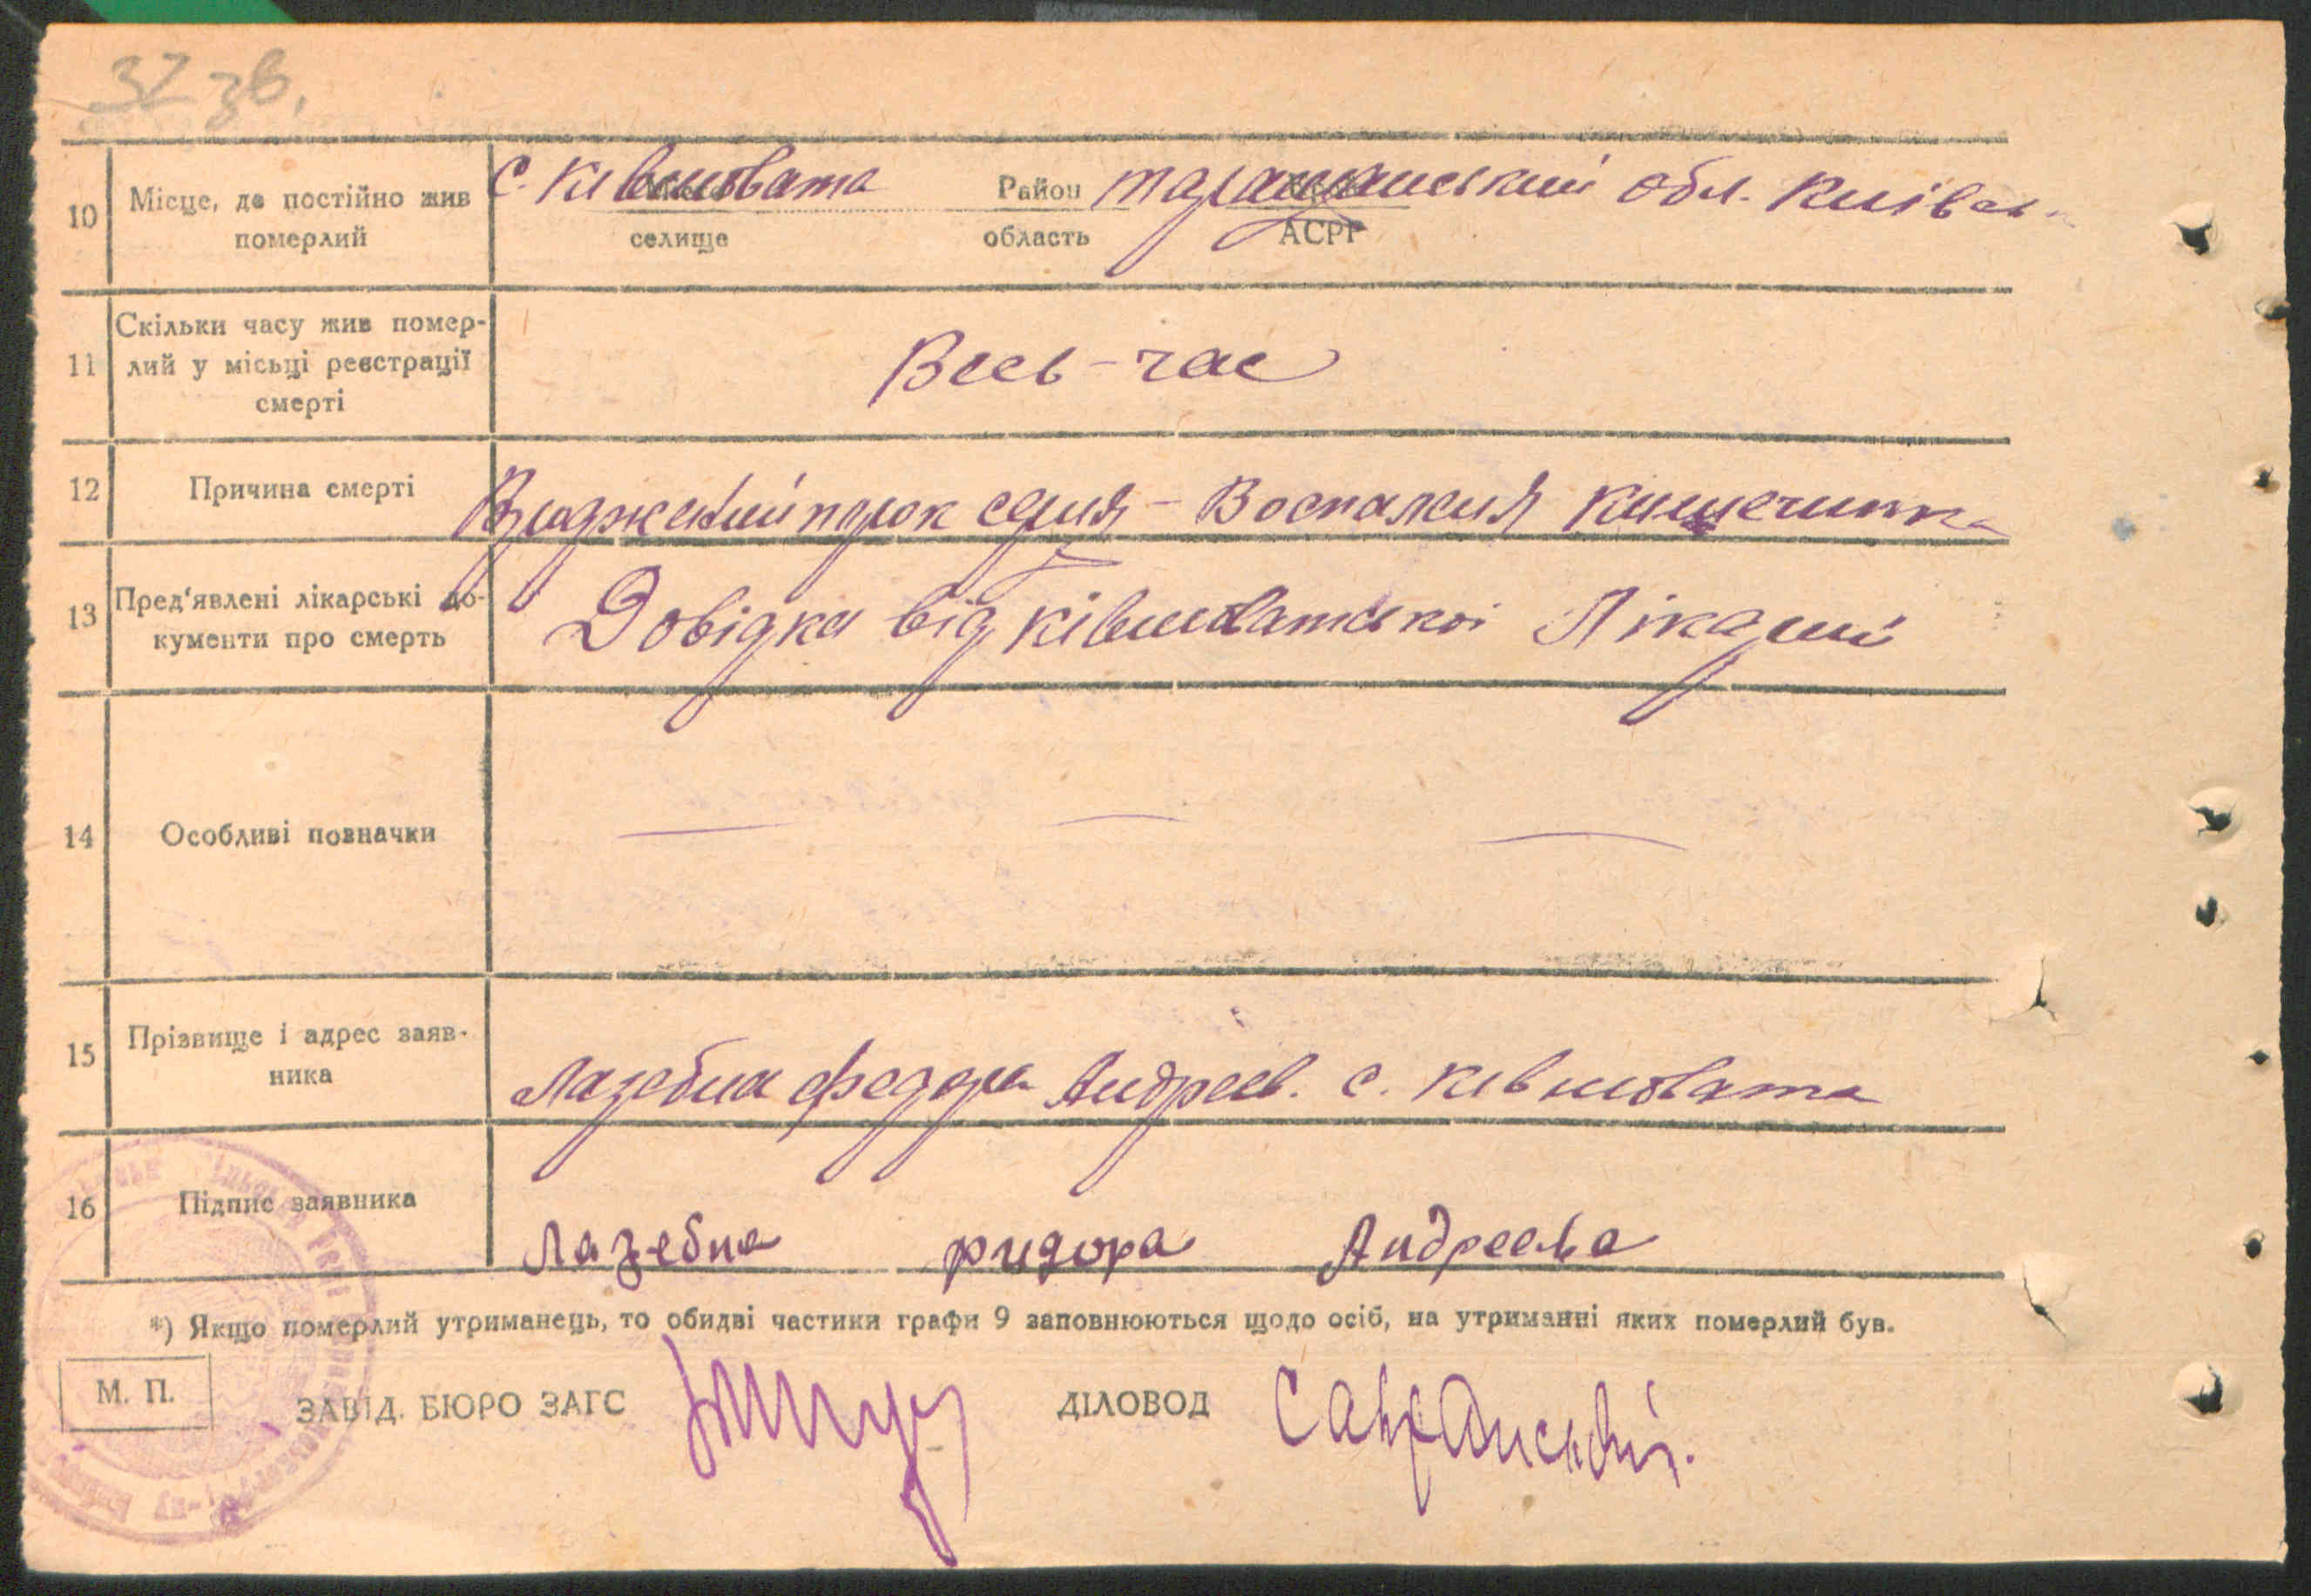 32 зв.
10 Місце, де постійно жив померлий
с. Ківшовата Район Таращанський обл. Київсь
селище область АСРР
11 Скільки часу жив помер-
лий у місьці реєстрації
смерті
Весь-час
12 Причина смерті
порок серця - Воспаления Кишечника
13 Пред'явлені лікарські до-
кументи про смерть
Довідка від Ківшоватської Лікарні
14 Особливі позначки
15 Прізвище і адрес заяв-
ника
Лазебна Федора Андреев. с. Ківшовата
16 Підпис заявника
Лазебна Фидора Андреевна
*) Якщо померлий утриманець, то обидві частини графи 9 заповнюються щодо осіб, на утриманні яких померлий був.
М. П.
ЗАВІД. БЮРО ЗАГС
ДІЛОВОД